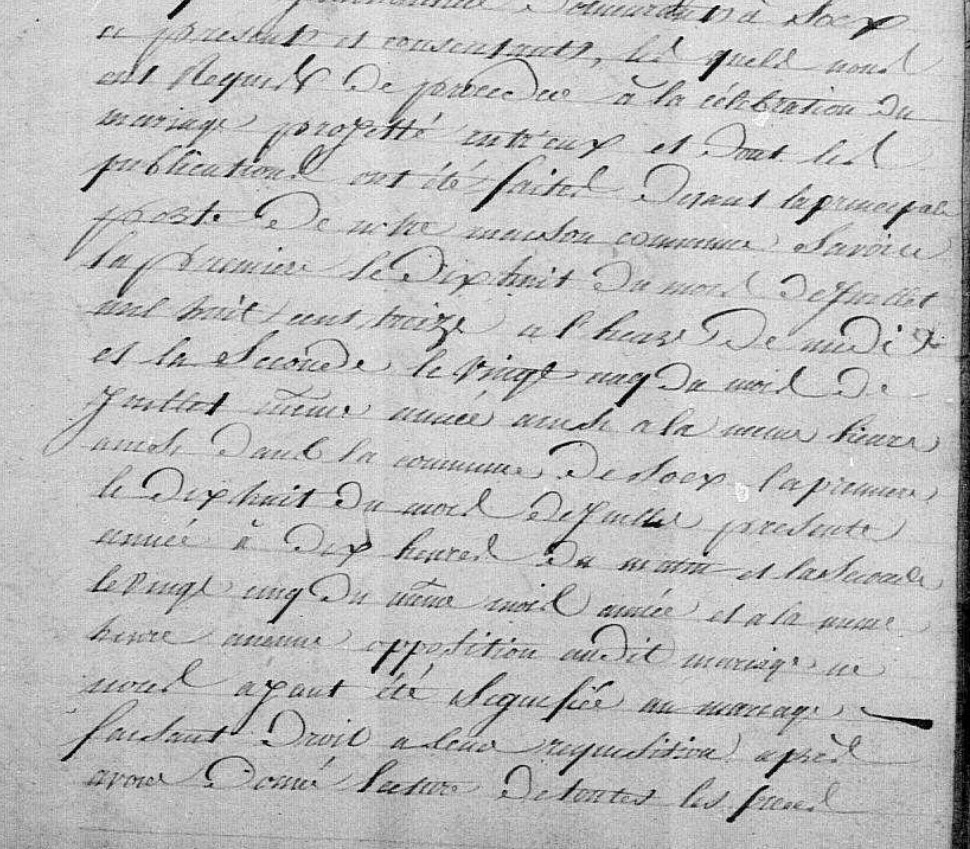 demeurants à Socx
ci presents et consentants, les quels nous
ont Requis de proceder à la célébration du
mariage projetté entr'eux et dont les
publications ont été faites devant la principale
porte de notre maison commune Savoir
la premiere le dix huit du mois de Juillet
mil huit cent treize a l'heure de midi &
et la Seconde le vingt cinq du mois de
Juillet même année a la meme heure
dans la commune de Socx la premiere
le dix huit du mois de Juillet presente
année à dix heures du matin et la Seconde
le vingt cinq du même mois année et a la meme
heure aucune opposition audit mariage ne
nous ayant été Signifiée au mariage
faisant droit a leur requisition après
avoir donné lecture de toutes les pieces